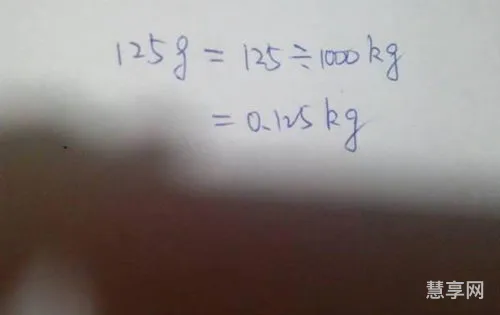 125g = 125÷1000kg
= 0.125kg
慧享网